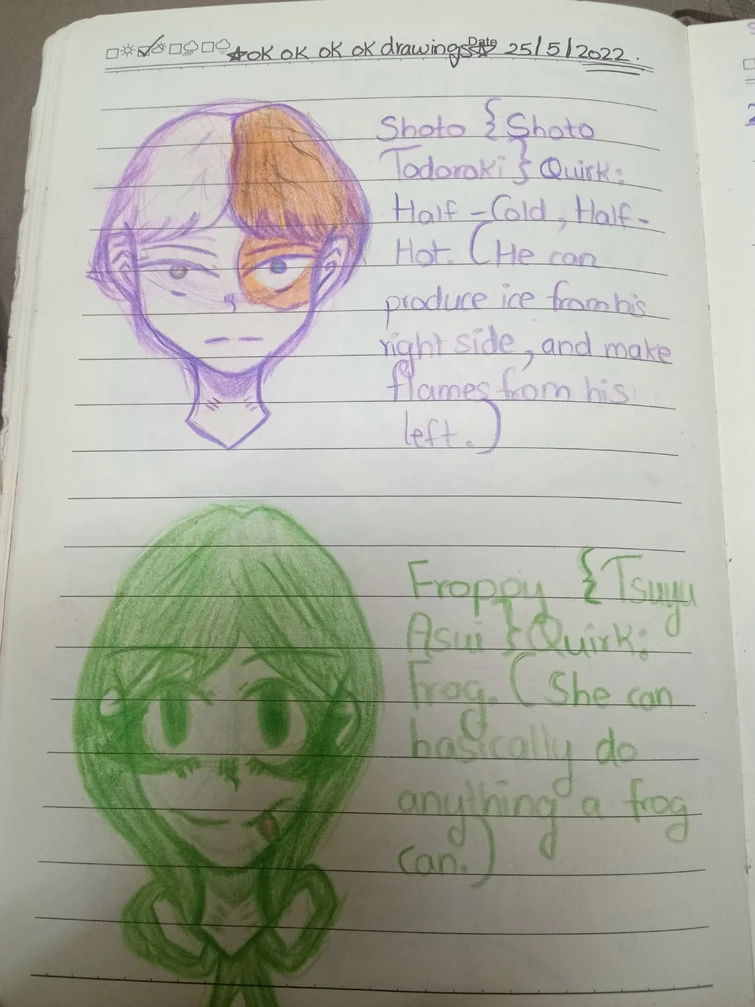 ☆OK OK OK OK drawings☆ Date 25/5/2022.
Shoto {Shoto
Todoroki} Quirk:
Half-Cold, Half-
Hot. (He can
produce ice from his
right side, and make
flames from his
left.)
Froppy {Tsuyu
Asui} Quirk:
Frog. (She can
basically do
anything a frog
can.)